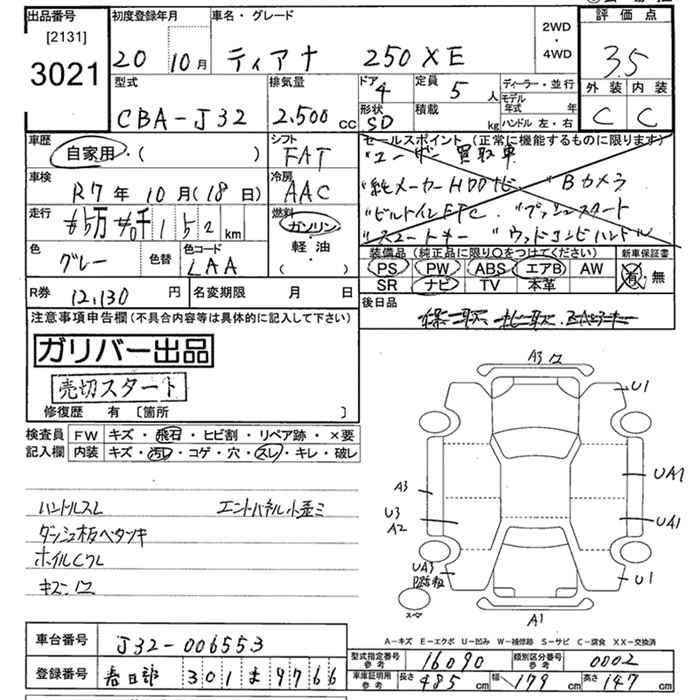 出品番号 初度登録年月 車名・グレード 2WD・4WD 評価点
[2131]
3021 20 10月 ティアナ 250XE 3.5
型式 排気量 ドア 4 定員 5人 ディーラー・並行 外装 内装
CBA-J32 2,500cc 形状 SD 積載 kg モデル年式 年 ハンドル 左・右 C C
車歴 自家用・( ) シフト FAT セールスポイント (正常に機能するものに限ります)
ユーザー買取車
車検 R7年10月(18日) 冷房 AAC 純メーカーHDDナビ Bカメラ
走行 152km 燃料 ガソリン・軽油・( ) ビルトインETC プッシュスタート
スマートキー ウッドコンビハンドル
色 グレー 色替 色コード LAA 装備品 (純正品に限り○をつけてください) 新車保証書
PS PW ABS エアB AW 有・無
SR ナビ TV 本革
R券 12,130円 名変期限 月 日 後日品
注意事項申告欄 (不具合内容等は具体的に記入して下さい)
ガリバー出品
売切スタート
修復歴 有 [箇所 ]
検査員 FW キズ・飛石・ヒビ割・リペア跡・×要
記入欄 内装 キズ・汚レ・コゲ・穴・スレ・キレ・破レ
ハンドルスレ エンドパネル小歪ミ
ダッシュ板ベタツキ
ホイルCワレ
キズ・凹
A3 凹
U1
A3
UA1
U3
A2
UA1
UA3
U1
スペア
A1
A-キズ E-エクボ U-凹み W-補修跡 S-サビ C-腐食 XX-交換済
車台番号 J32-006553
型式指定番号 参考 16090 類別区分番号 参考 0002
登録番号 春日部 301 ま 9766
車庫証明用 参考 長さ 485cm 幅 179cm 高さ 147cm